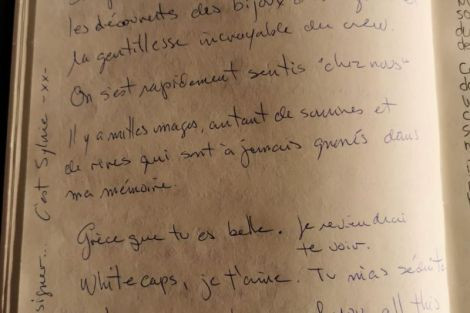 les découverts des bijoux
la gentillesse incroyable du crew.
On s'est rapidement sentis "chez nous"
Il y a milles images, autant de sourires et
de rêves qui sont à jamais gravés dans
ma mémoire.
Grèce que tu es belle. Je reviendrai
te voir.
White caps, je t'aime. Tu m'as séduite
all this
signer... C'est Sylvie -xx-